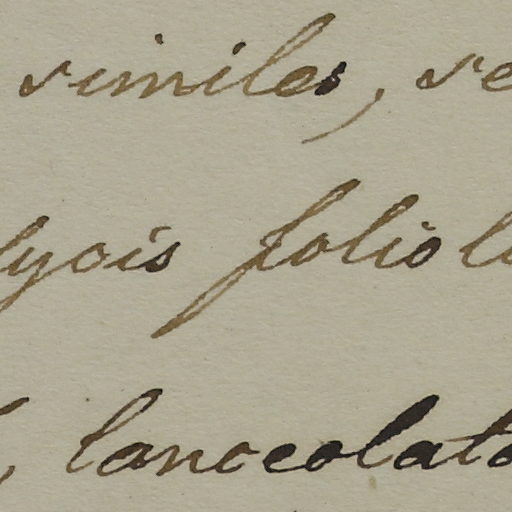 similes, se
lycis foliol
, lanceolato